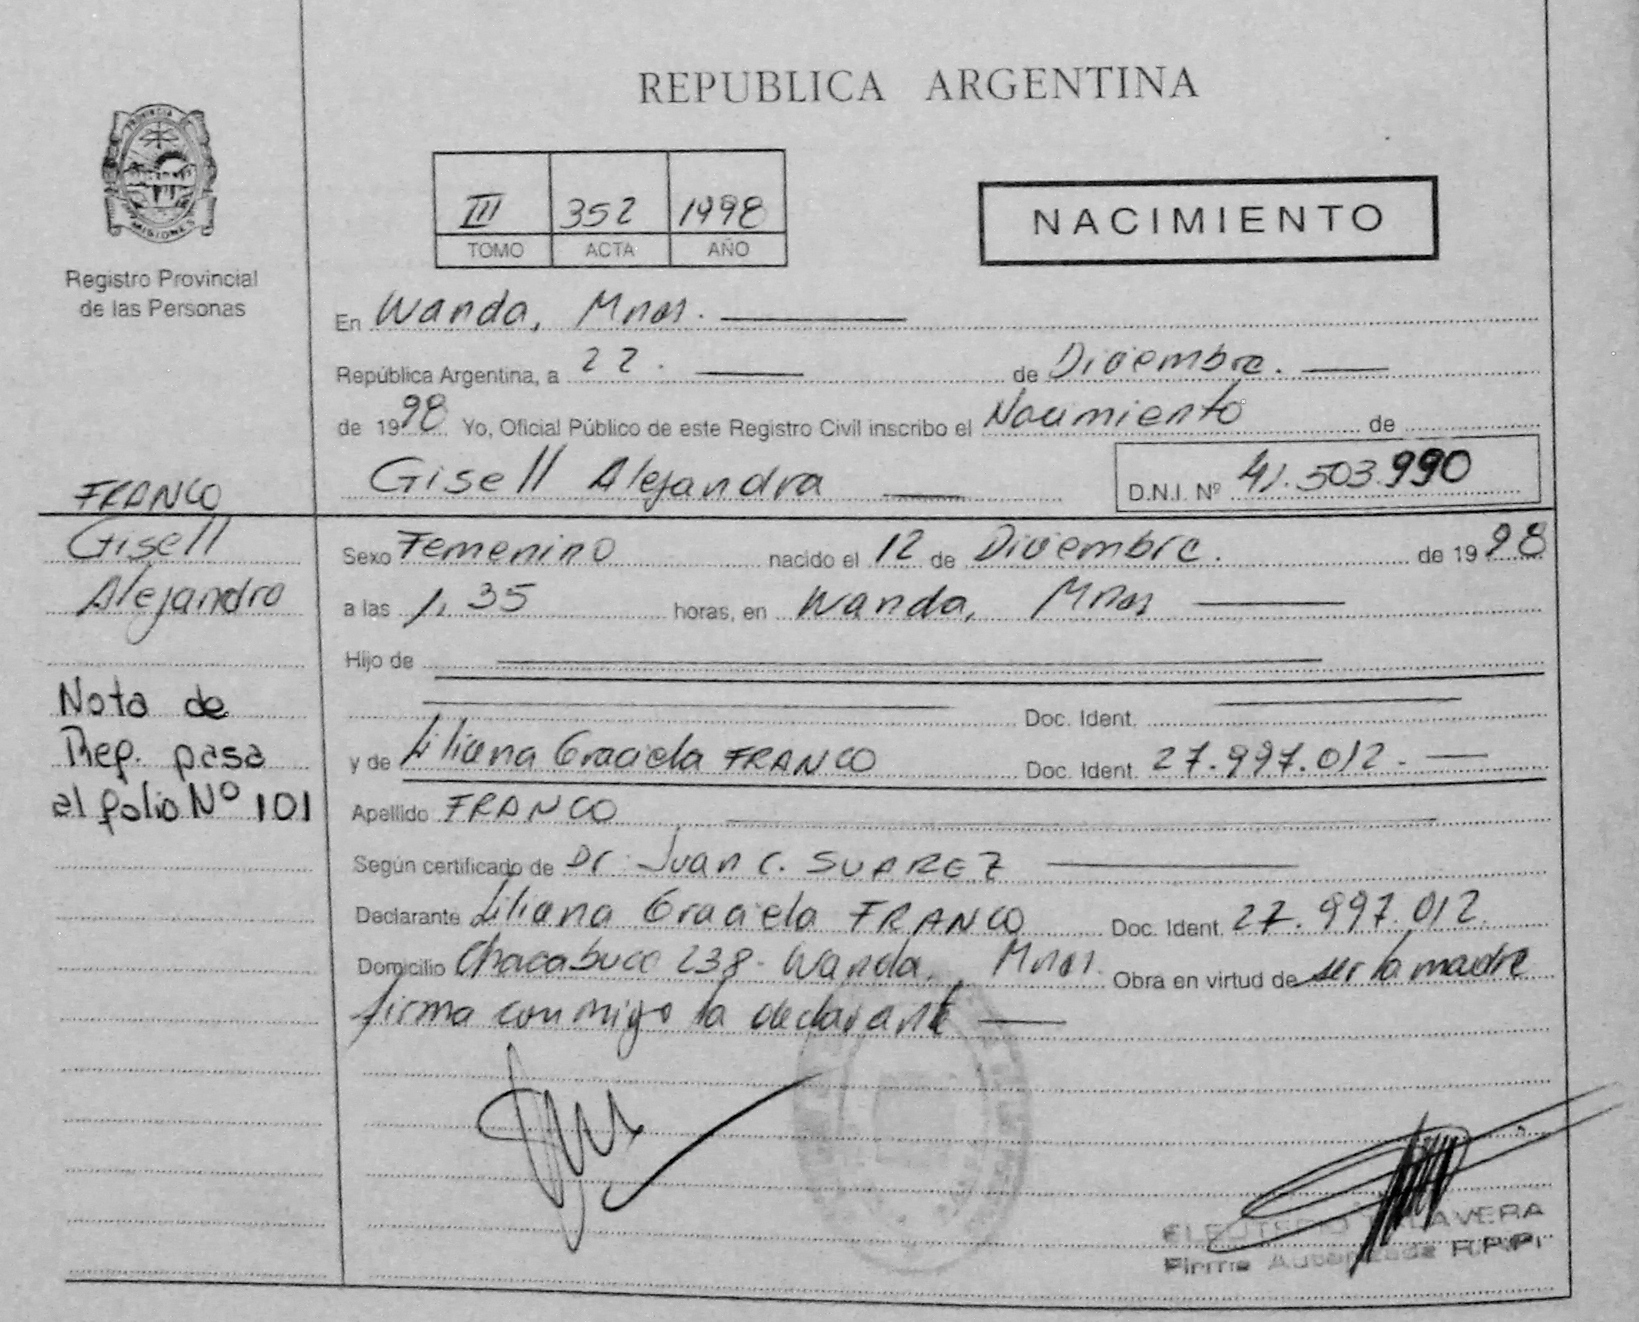 REPUBLICA ARGENTINA
PROVINCIA DE
MISIONES
Registro Provincial
de las Personas
III 352 1998
TOMO ACTA AÑO
NACIMIENTO
En Wanda, Mnes.
República Argentina, a 22. de Diciembre.
de 1998 Yo, Oficial Público de este Registro Civil inscribo el Nacimiento de
Gisell Alejandra D.N.I. Nº 41.503.990
FRANCO
Gisell
Alejandra
Nota de
Rep. pasa
al folio Nº 101
Sexo Femenino nacido el 12 de Diciembre. de 1998
a las 1,35 horas, en Wanda, Mnes
Hijo de
Doc. Ident.
y de Liliana Graciela FRANCO Doc. Ident. 27.997.012.
Apellido FRANCO
Según certificado de Dr. Juan C. SUAREZ
Declarante Liliana Graciela FRANCO Doc. Ident. 27.997.012.
Domicilio Chacabuco 238- Wanda, Mnes. Obra en virtud de ser la madre
firma conmigo la declarante
ELEUTERIO TALAVERA
Firma Autorizada R.P.P.